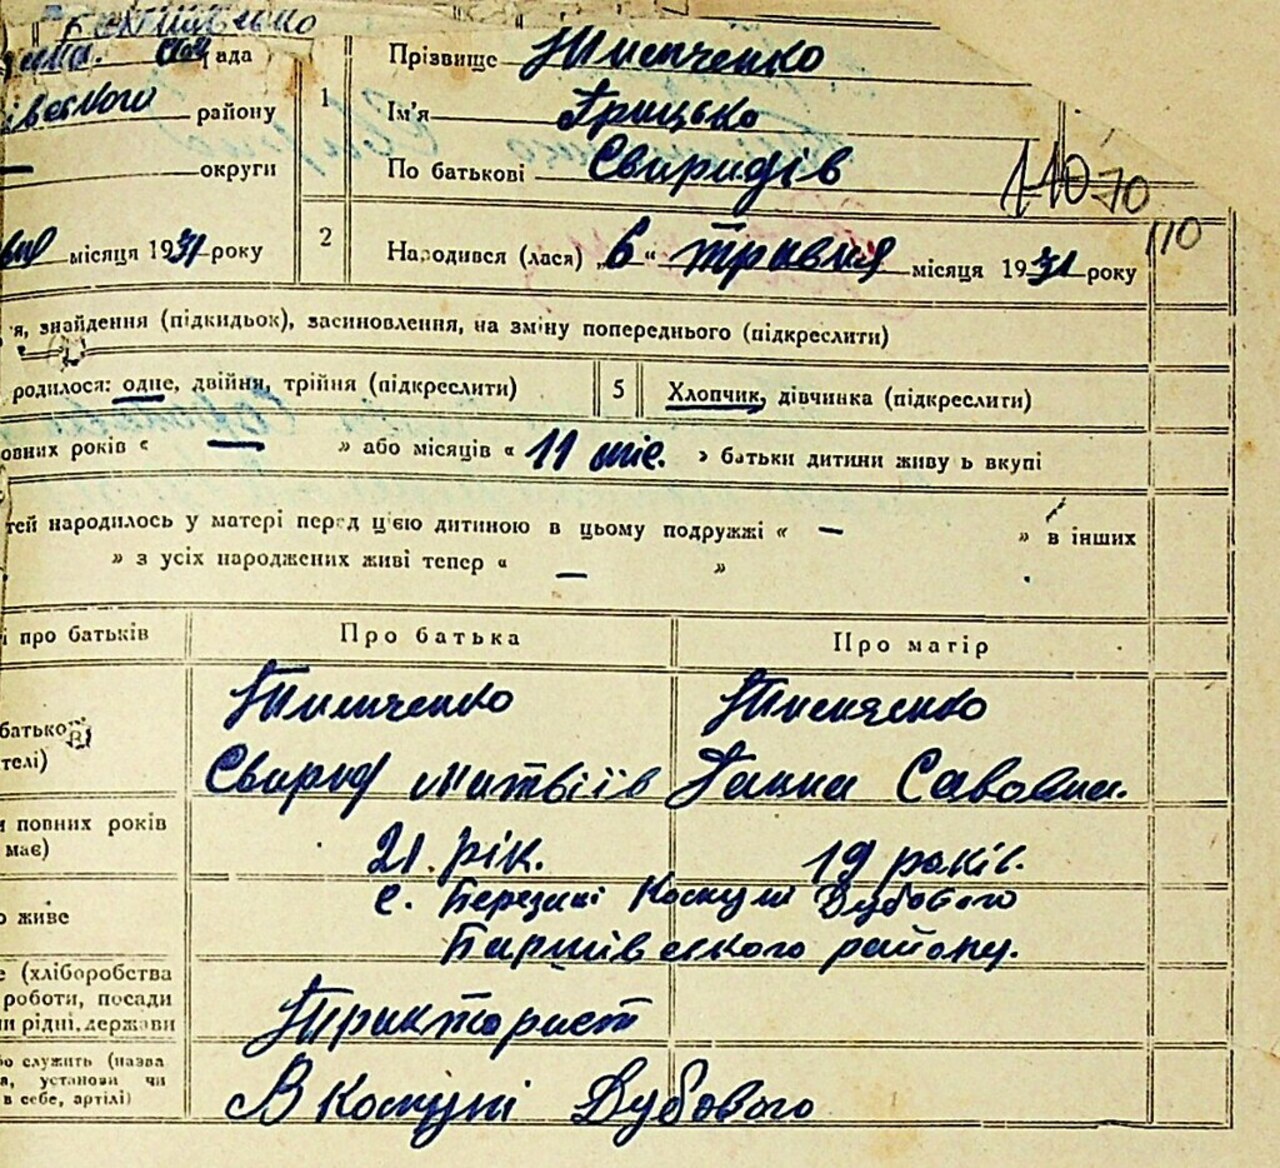 рада
Прізвище Тимченко
району
1
Ім'я Грицько
округи
По батькові Свиридів
110 70
110
місяця 1931 року
2
Народився (лася) „6“ травня місяця 1931 року
я, знайдення (підкидьок), засиновлення, на зміну попереднього (підкреслити)
родилося: одне, двійня, трійня (підкреслити)
5
Хлопчик, дівчинка (підкреслити)
овних років « — » або місяців « 11 міс. » батьки дитини живуть вкупі
тей народилось у матері перед цією дитиною в цьому подружжі « — » в інших
» з усіх народжених живі тепер « — »
і про батьків
Про батька
Про матір
батькові
телі)
Тимченко
Свирид Матвіїв
Тимченко
Ганна Савовна.
и повних років
має)
21. рік.
19 років.
о живе
с. Березані Комуни Дубового
Баришівського району.
е (хліборобства
роботи, посади
и рідні, держави
Тракторист
бо служить (назва
а, установи чи
в себе, артілі)
В Комуні Дубового